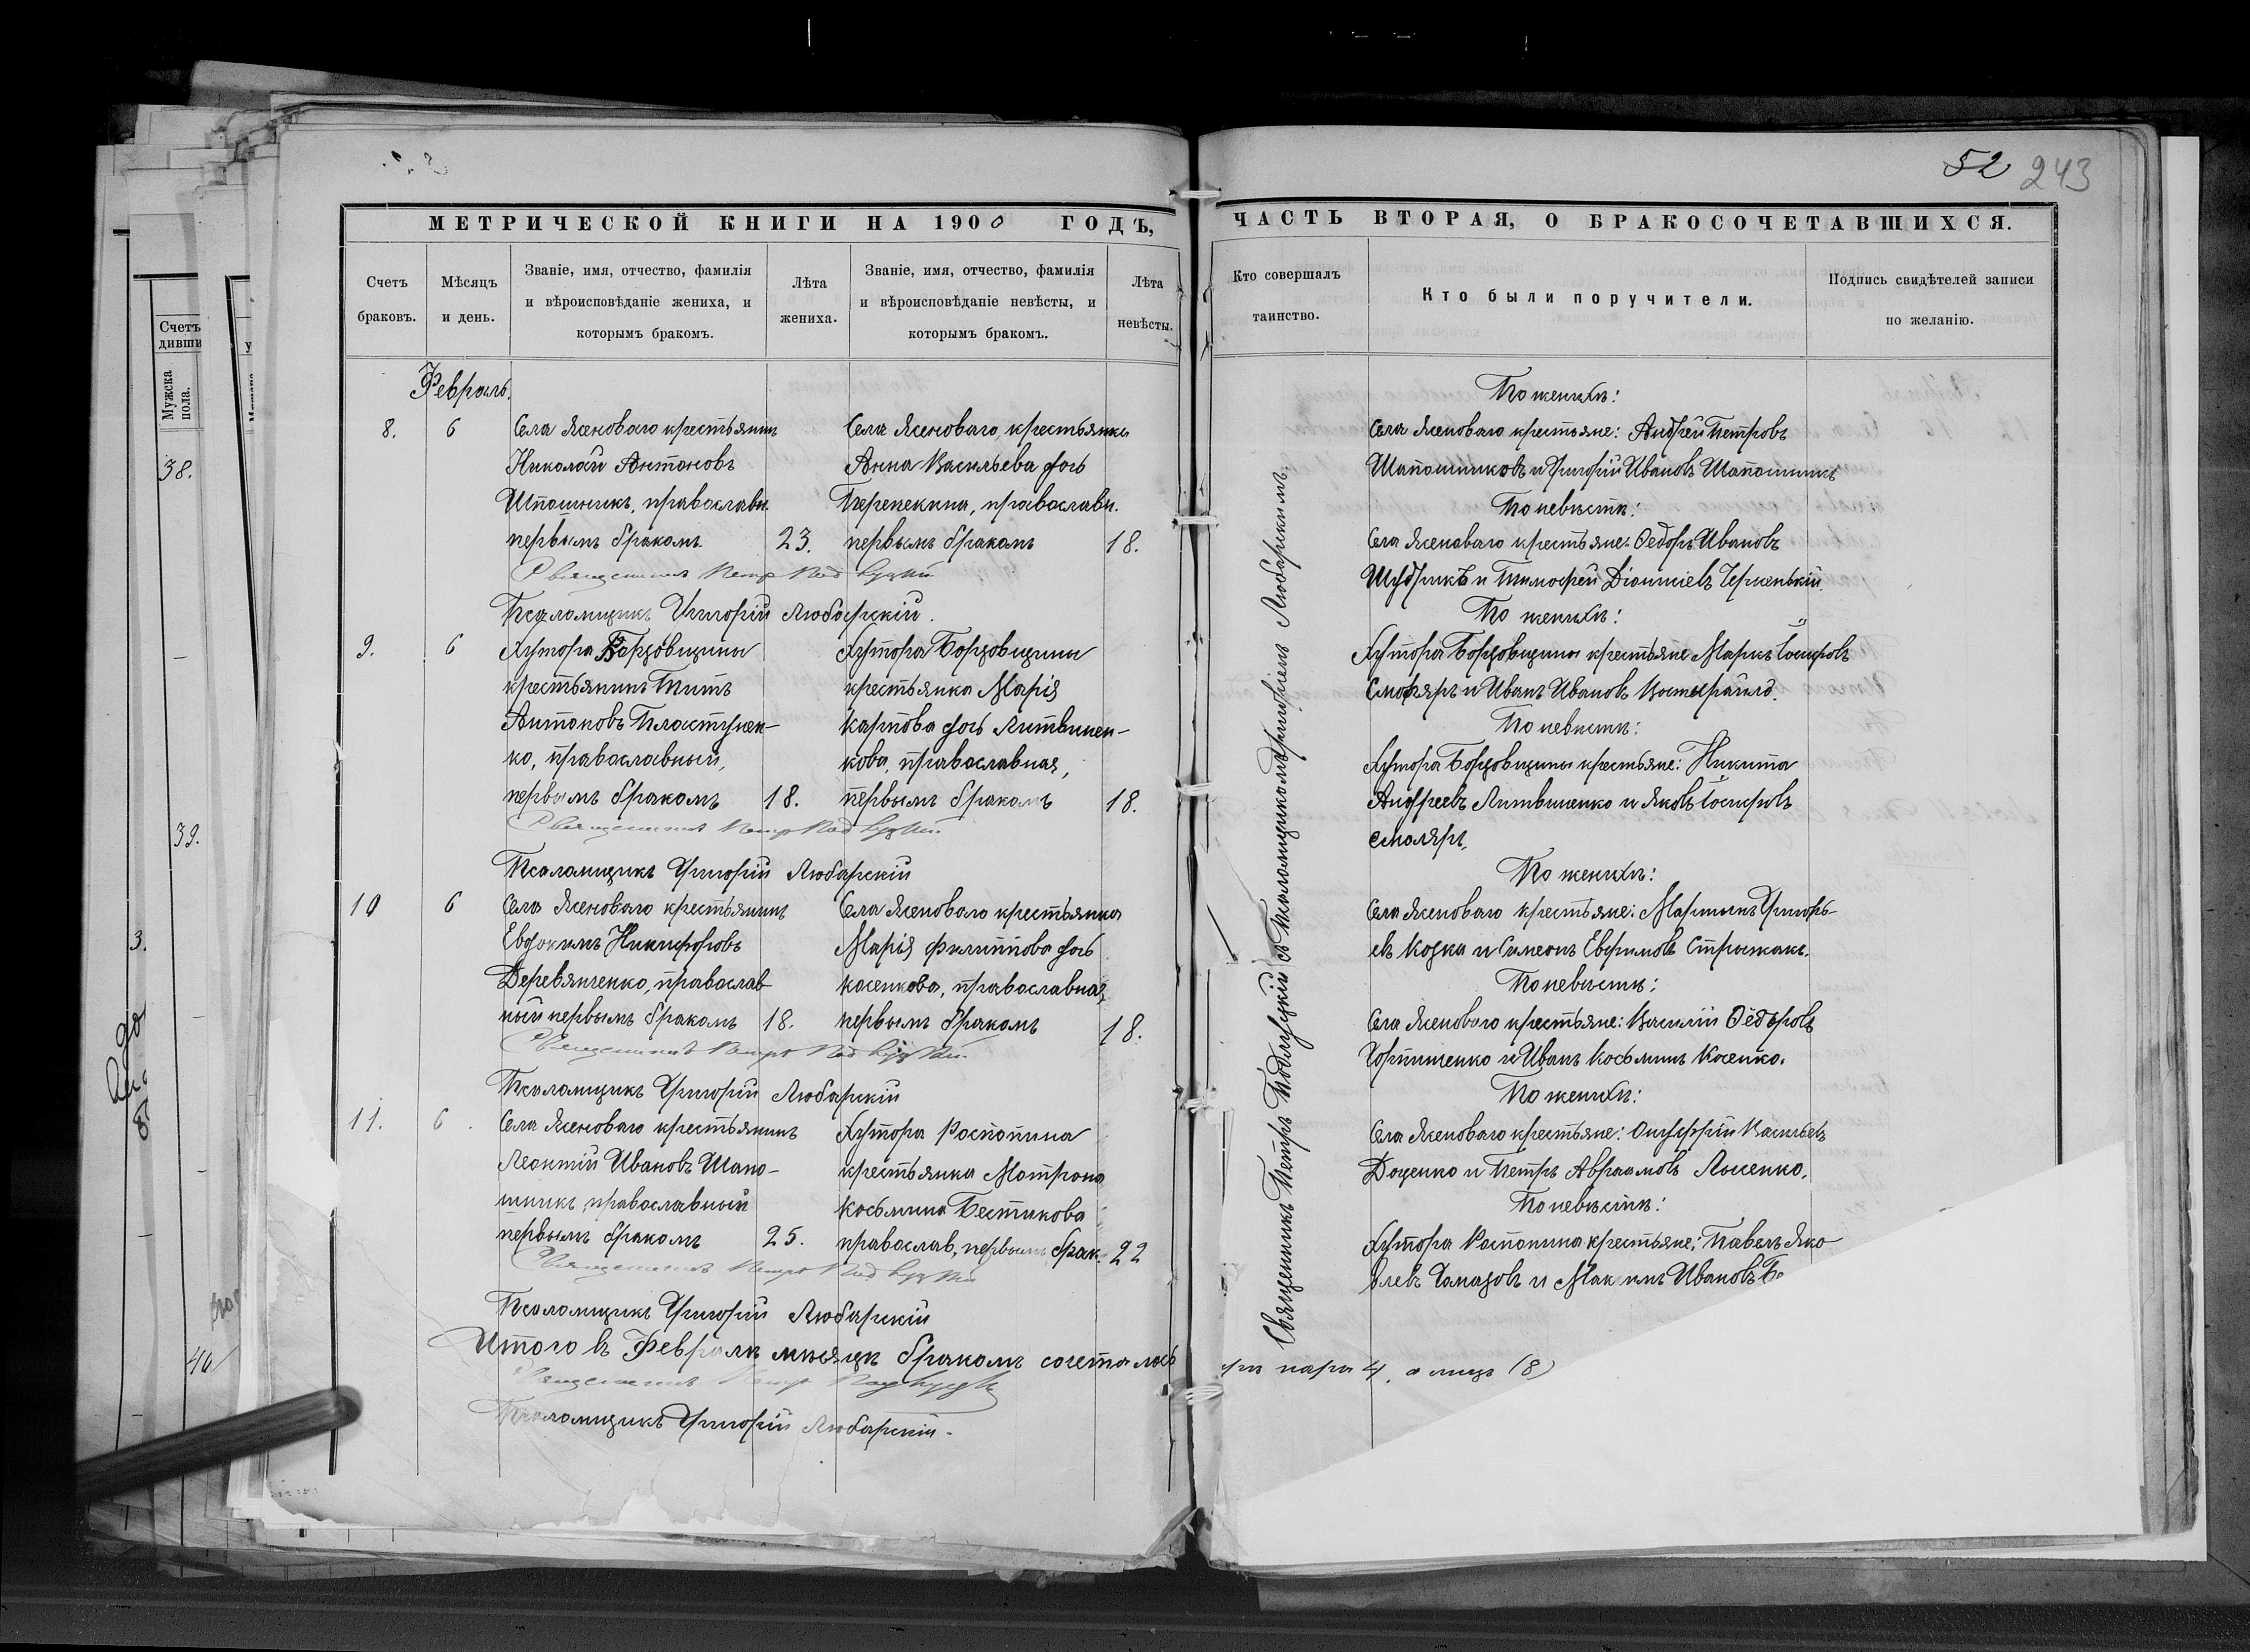 52 243
МЕТРИЧЕСКОЙ КНИГИ НА 1900 ГОДЪ,
Счетъ браковъ.
Мѣсяцъ и день.
Званіе, имя, отчество, фамилія
и вѣроисповѣданіе жениха, и
которымъ бракомъ.
Лѣта жениха.
Званіе, имя, отчество, фамилія
и вѣроисповѣданіе невѣсты, и
которымъ бракомъ.
Лѣта невѣсты.
Февраль.
8. 6 Села Ясеноваго крестьянинъ Села Ясеноваго крестьянка
Николай Антоновъ Анна Васильева дочь
православн. Перепекина, православн.
первымъ бракомъ 23. первымъ бракомъ 18.
Священникъ Петръ
Псаломщикъ Григорій Любарскій.
9. 6 Хутора Борзовщины Хутора Борзовщины
крестьянинъ Титъ крестьянка Марія
Антоновъ Пластунен- Карпова дочь Литвинен-
ко, православный, кова, православная,
первымъ бракомъ 18. первымъ бракомъ 18.
Священникъ Петръ
Псаломщикъ Григорій Любарскій
10 6 Села Ясеноваго крестьянинъ Села Ясеноваго крестьянка
Евдокимъ Никифоровъ Марія Филиппова дочь
Деревянченко, православ- Косенкова, православная,
ный первымъ бракомъ 18. первымъ бракомъ 18.
Священникъ Петръ
Псаломщикъ Григорій Любарскій
11. 6. Села Ясеноваго крестьянинъ Хутора Распопина
Леонтій Ивановъ Шапо- крестьянка Матрона
шникъ, православный Косьмина Бестикова
первымъ бракомъ 25. православ, первымъ брак. 22
Священникъ Петръ
Псаломщикъ Григорій Любарскій
Итого въ Февралѣ мѣсяцѣ бракомъ сочеталось
Священникъ Петръ
Псаломщикъ Григорій Любарскій.
ЧАСТЬ ВТОРАЯ, О БРАКОСОЧЕТАВШИХСЯ.
Кто совершалъ таинство.
Кто были поручители.
Подпись свидѣтелей записи
по желанію.
Священникъ Петръ съ Псаломщикомъ Григоріемъ Любарскимъ.
По женихѣ:
Села Ясеноваго крестьяне: Андрей Петровъ
Шапошниковъ и Григорій Ивановъ Шапошникъ
По невѣстѣ:
Села Ясеноваго крестьяне: Ѳедоръ Ивановъ
и Тимофей Діонисіевъ
По женихѣ:
Хутора Борзовщины крестьяне Маркъ Іосифовъ
Смоляръ и Иванъ Ивановъ
По невѣстѣ:
Хутора Борзовщины крестьяне: Никита
Андреевъ Литвиненко и Яковъ Іосифовъ
Смоляръ.
По женихѣ:
Села Ясеноваго крестьяне: Мартынъ Григорь-
евъ Козка и Симеонъ Евфимовъ
По невѣстѣ:
Села Ясеноваго крестьяне: Василій Ѳедоровъ
и Иванъ Косьминъ Косенко.
По женихѣ:
Села Ясеноваго крестьяне: Онуфрій Васильевъ
Доценко и Петръ Авраамовъ Лысенко.
По невѣстѣ:
Хутора Распопина крестьяне: Павелъ Яко-
влевъ и Ивановъ
пара 4, а лицъ (8)
Счетъ
Мужска
пола.
38.
39.
40
3.